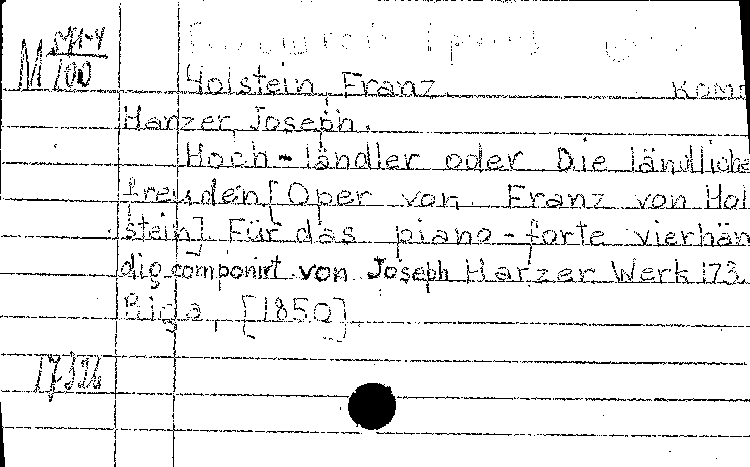 M 100
Holstein, Franz. комп
Harzer, Joseph.
Hoch-ländler oder Die ländliche
freuden [Oper von Franz von Hol
stein]. Für das piano-forte vierhän
dig componirt von Joseph Harzer. Werk 173.
Riga, [1850].
17326